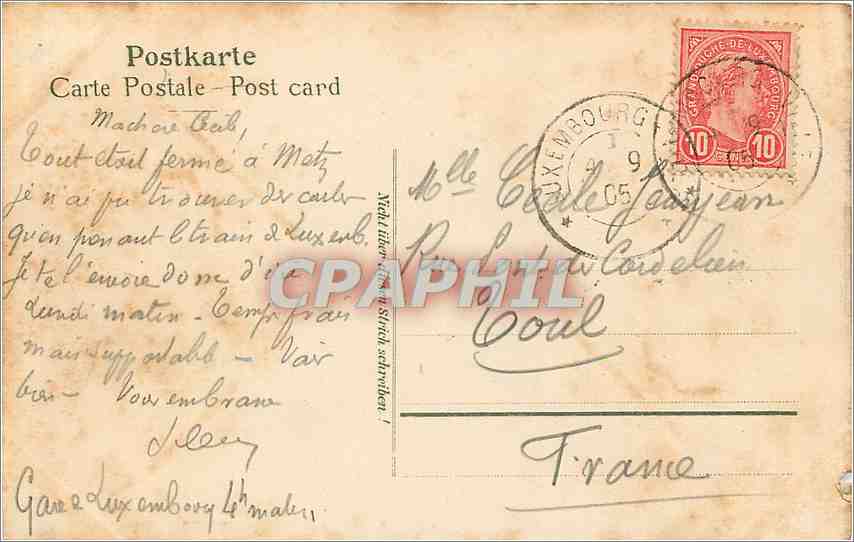 Postkarte
Carte Postale - Post card
Ma chère Cecile,
Tout était fermé à Metz
je n'ai pu trouver des cartes
qu'en prenant le train de Luxemb.
Je te l'envoie donc d'ici
Lundi matin - Temps frais
mais supportable -
bien - Vous embrasse
Gare de Luxembourg 4h matin
Nicht über diesen Strich schreiben!
GRAND DUCHÉ-DE-LUXEMBOURG
10 10
LUXEMBOURG
9
05
Mlle Cecile Jeanjean
Rue Pont des Cordeliers
Toul
France
CPAPHIL